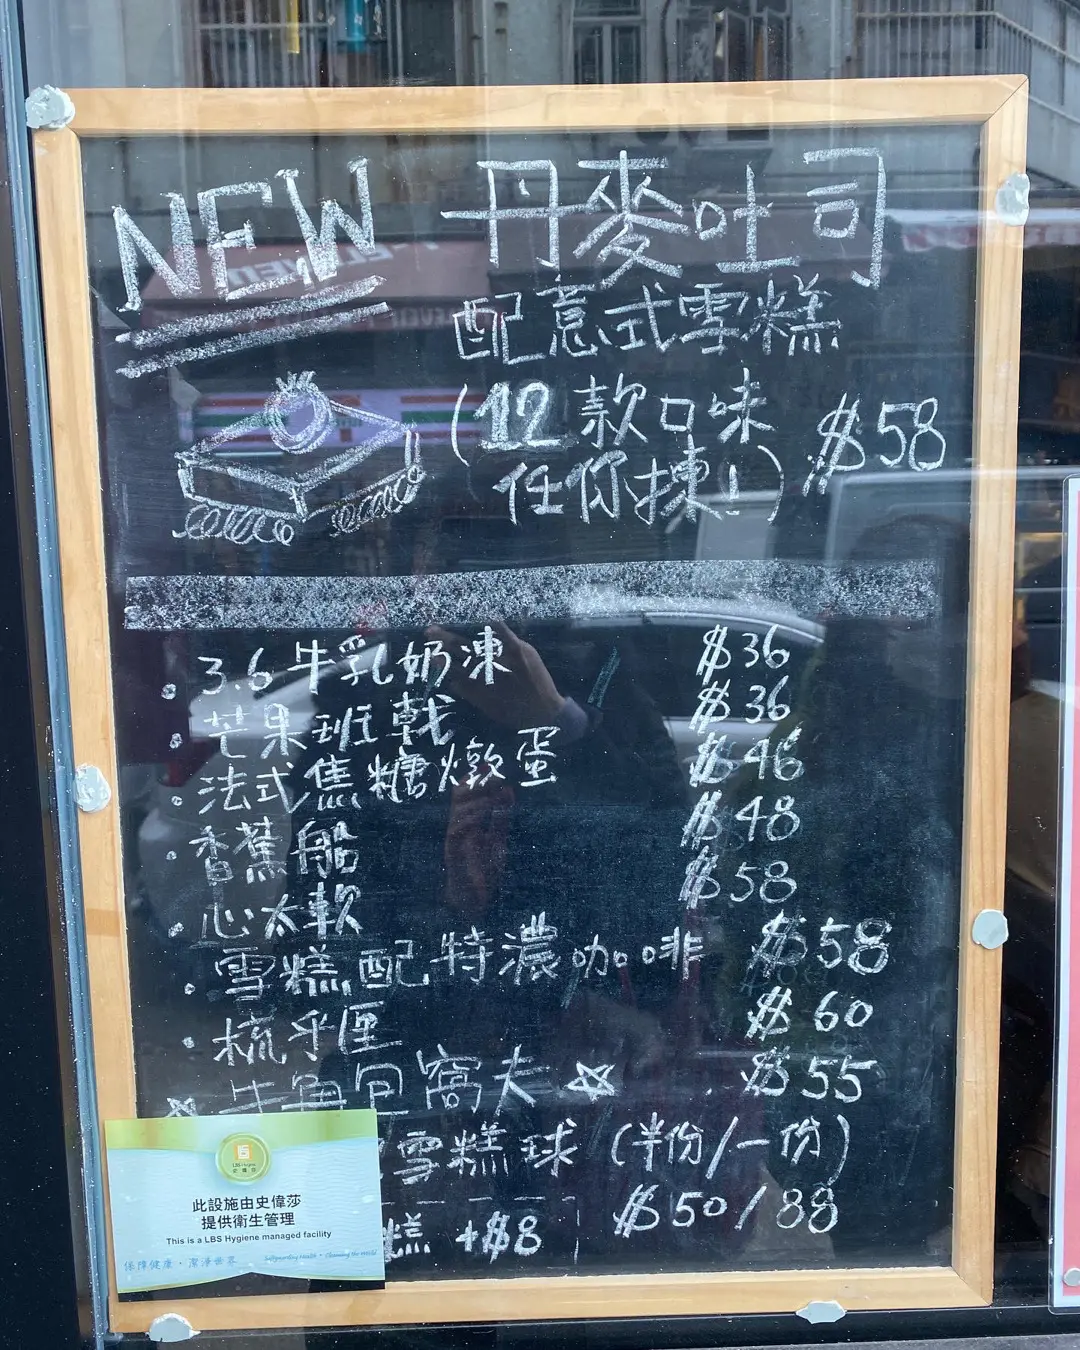 NEW 丹麥吐司
配意式雪糕
(12款口味
任你揀!) $58
3.6牛乳奶凍 $36
芒果班戟 $36
法式焦糖燉蛋 $46
香蕉船 $48
心太軟 $58
雪糕配特濃咖啡 $58
梳乎厘 $60
牛角包窩夫 $55
雪糕球 (半份/一份)
糕 +$8 $50/88
LBS Hygiene
史偉莎
此設施由史偉莎
提供衛生管理
This is a LBS Hygiene managed facility
保障健康・潔淨世界 Safeguarding Health • Cleansing the World